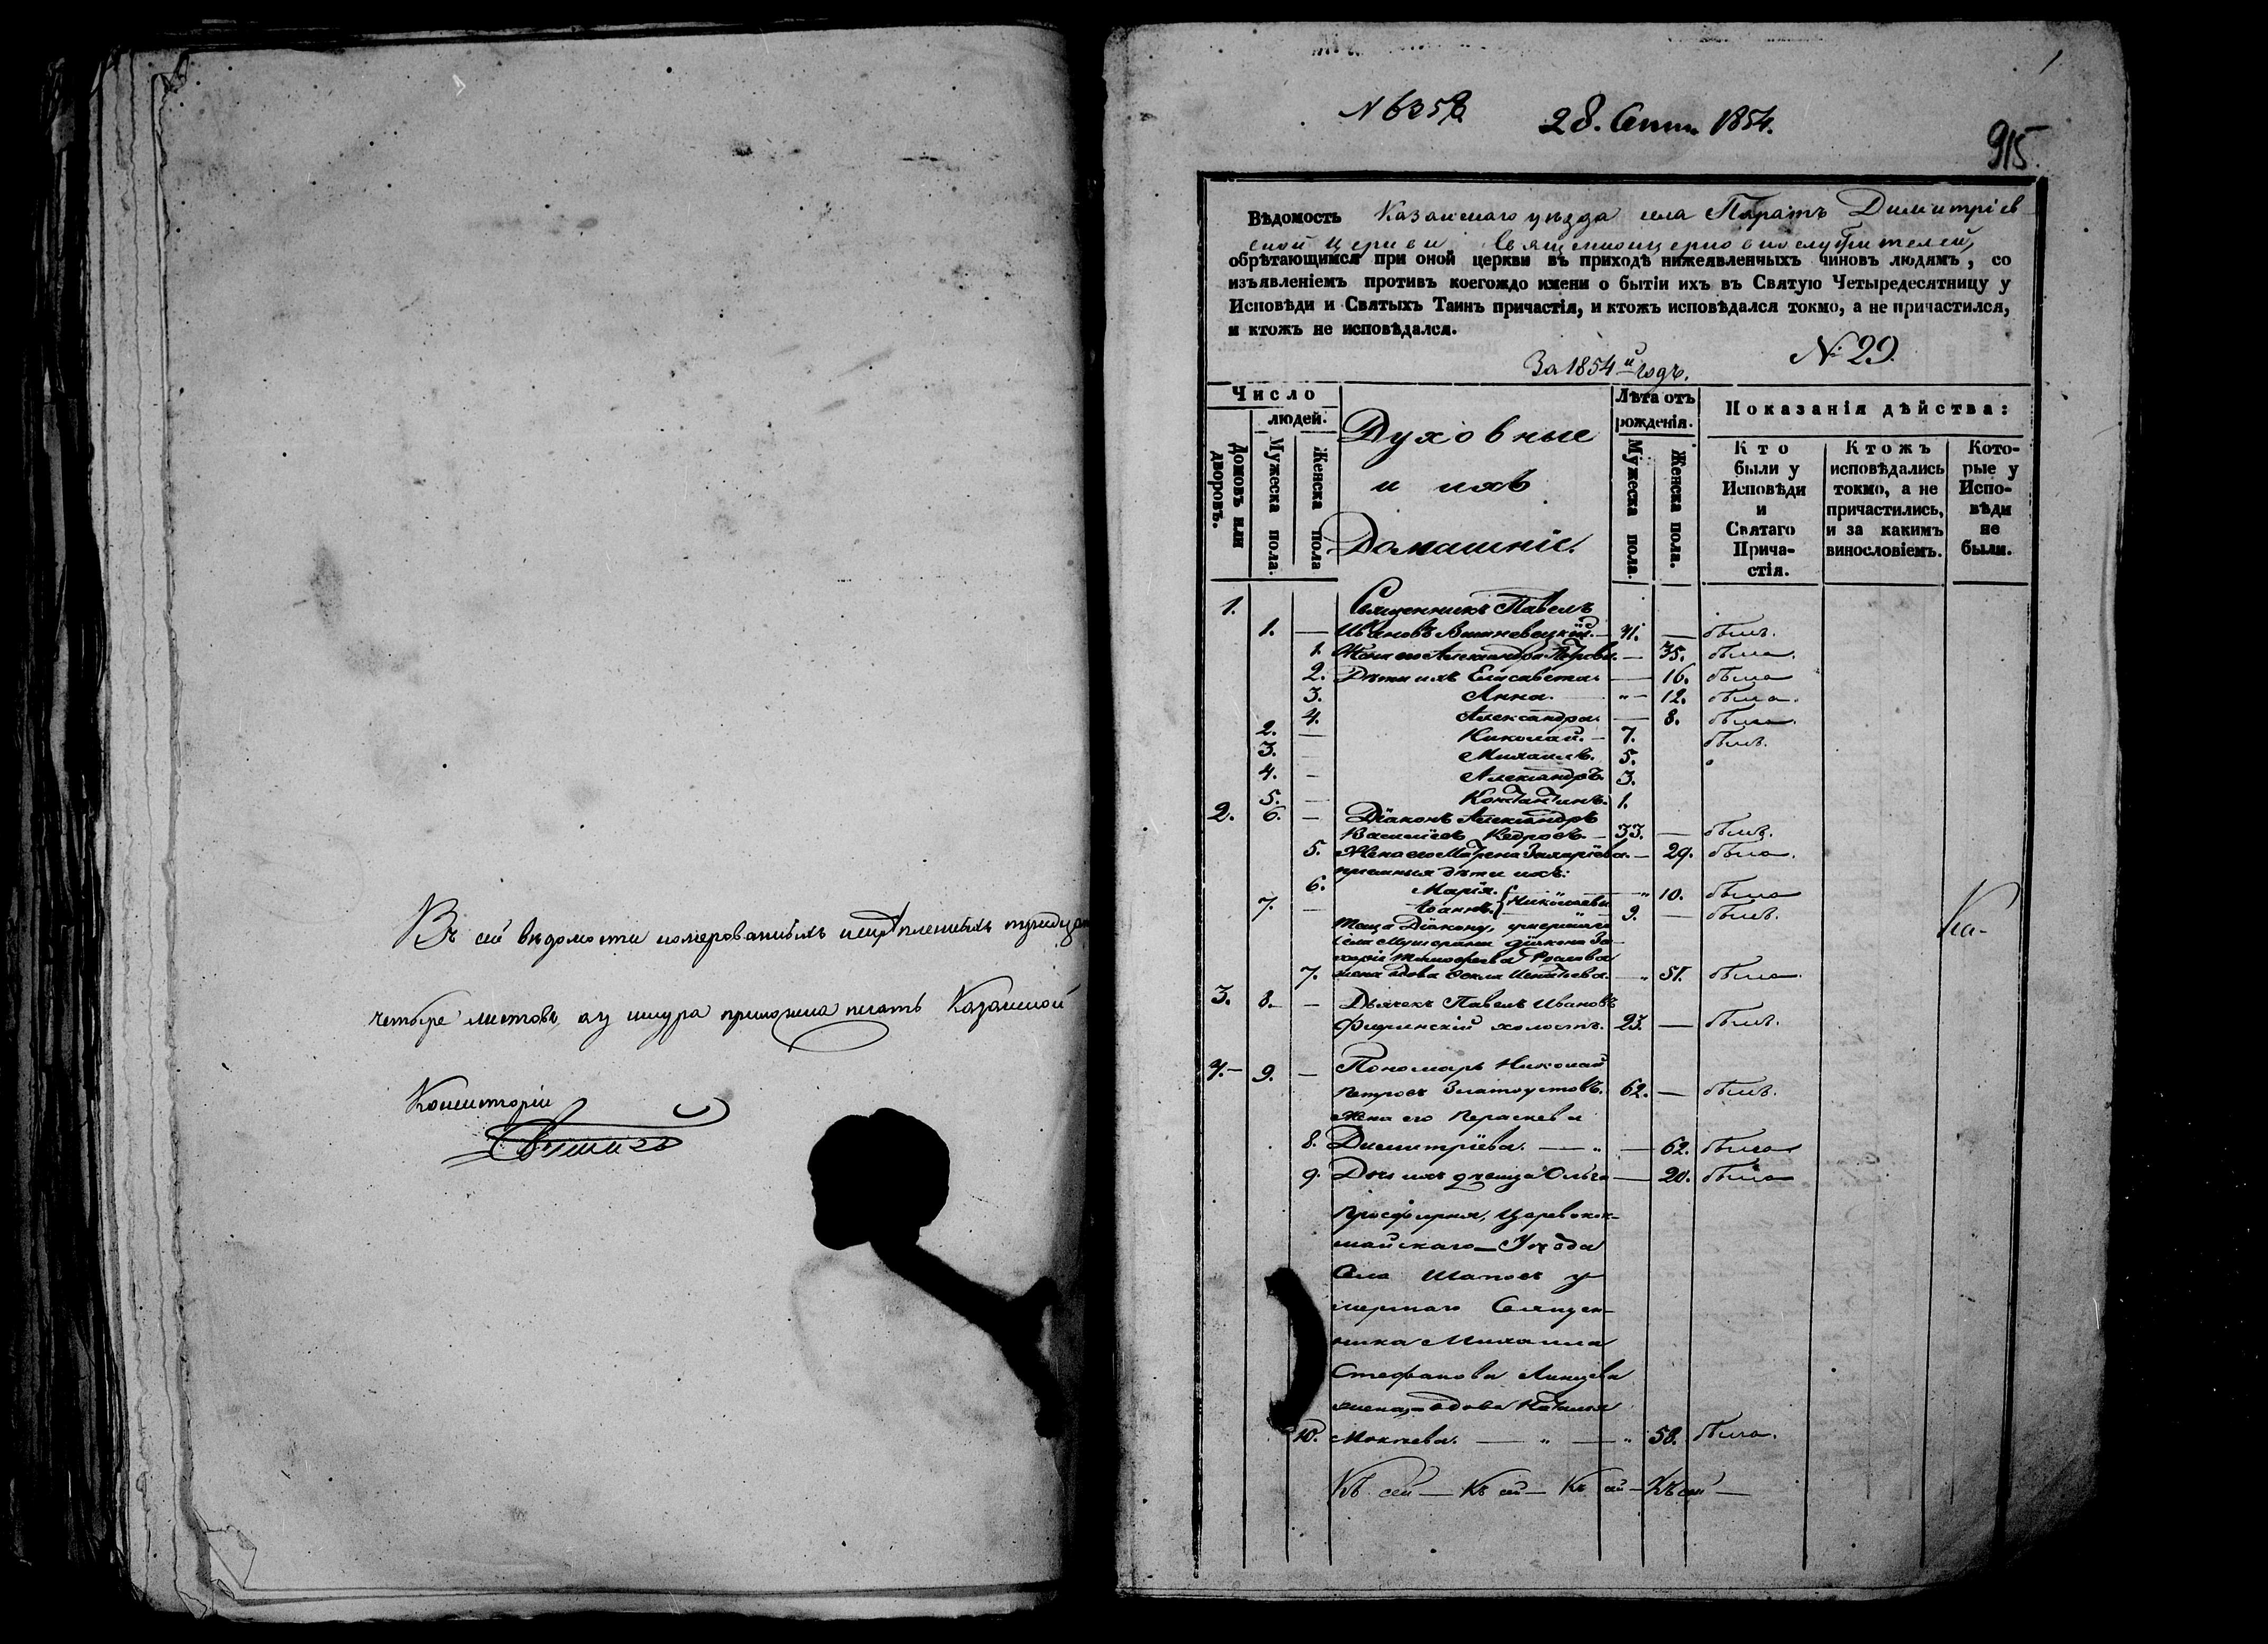 Въ сей ведомости номерованныхъ и скрѣпленныхъ тридцать
четыре листовъ, а у шнура приложена печать Казанской
Консисторіи
1
28. Сент. 1854.
915.
Вѣдомость Казанскаго уѣзда села Паратъ Димитріев
ской церкви Священноцерковнослужителей,
обрѣтающимся при оной церкви въ приходѣ нижеявленныхъ чиновъ людямъ, со
изъявленіемъ противъ коегождо имени о бытіи ихъ въ Святую Четыредесятницу у
Исповѣди и Святыхъ Таинъ причастія, и ктожъ исповѣдался токмо, а не причастился,
и ктожъ не исповѣдался.
№ 29.
За 1854й годъ.
Число
людей.
Домовъ или дворовъ.
Мужеска пола.
Женска пола
Духовные
и ихъ
Домашніе.
Лѣта отъ
рожденія.
Мужеска пола.
Женска пола.
Показанія дѣйства:
Кто
были у
Исповѣди
и
Святаго
Прича-
стія.
Ктожъ
исповѣдались
токмо, а не
причастились,
и за какимъ
винословіемъ.
Кото-
рые у
Испо-
вѣди
не
были.
1. Священникъ Павелъ
1. — Ивановъ Вишневецкій. — 41. — былъ.
1. Жена его Александра Петрова. — 35. была.
2. Дѣти ихъ Елисавета. — 16. была
3. Анна. " — 12. была.
4. Александра. — 8. была.
2. — Николай. — 7. былъ.
3. Михаилъ. 5.
4. — Александръ. 3.
5. — Константинъ. 1.
2. 6. — Діаконъ Александръ
Васильевъ Кедровъ. — 33. — былъ.
5. Жена его Матрена Захаріева. — 29. была.
пріемныя дѣти ихъ:
6. Марія. } Николаевы — " 10. была
7. — Іоаннъ. 9. — былъ.
Теща Діакону, умершаго
села діакона За-
харіи Тимофеева
7. жена вдова Фекла Игнатьева. " 51. была.
3. 8. — Дьячекъ Павелъ Ивановъ
холостъ. 23. — былъ.
4. — 9. — Пономарь Николай
Петровъ Златоустовъ. 62. — былъ.
Жена его Параскева
8. Димитріева. — " — 62. была
9. Дочь ихъ дѣвица Ольга — 20. была
Просфирня, Царевокок-
шайскаго Уѣзда
Села Шапов у
мершаго Священ-
ника Михаила
Стефанова
жена, вдова Наталья
10. Мокіева. — " — " 58. была.
Ка-
Къ сей — Къ сей — Къ сей — Къ сей —